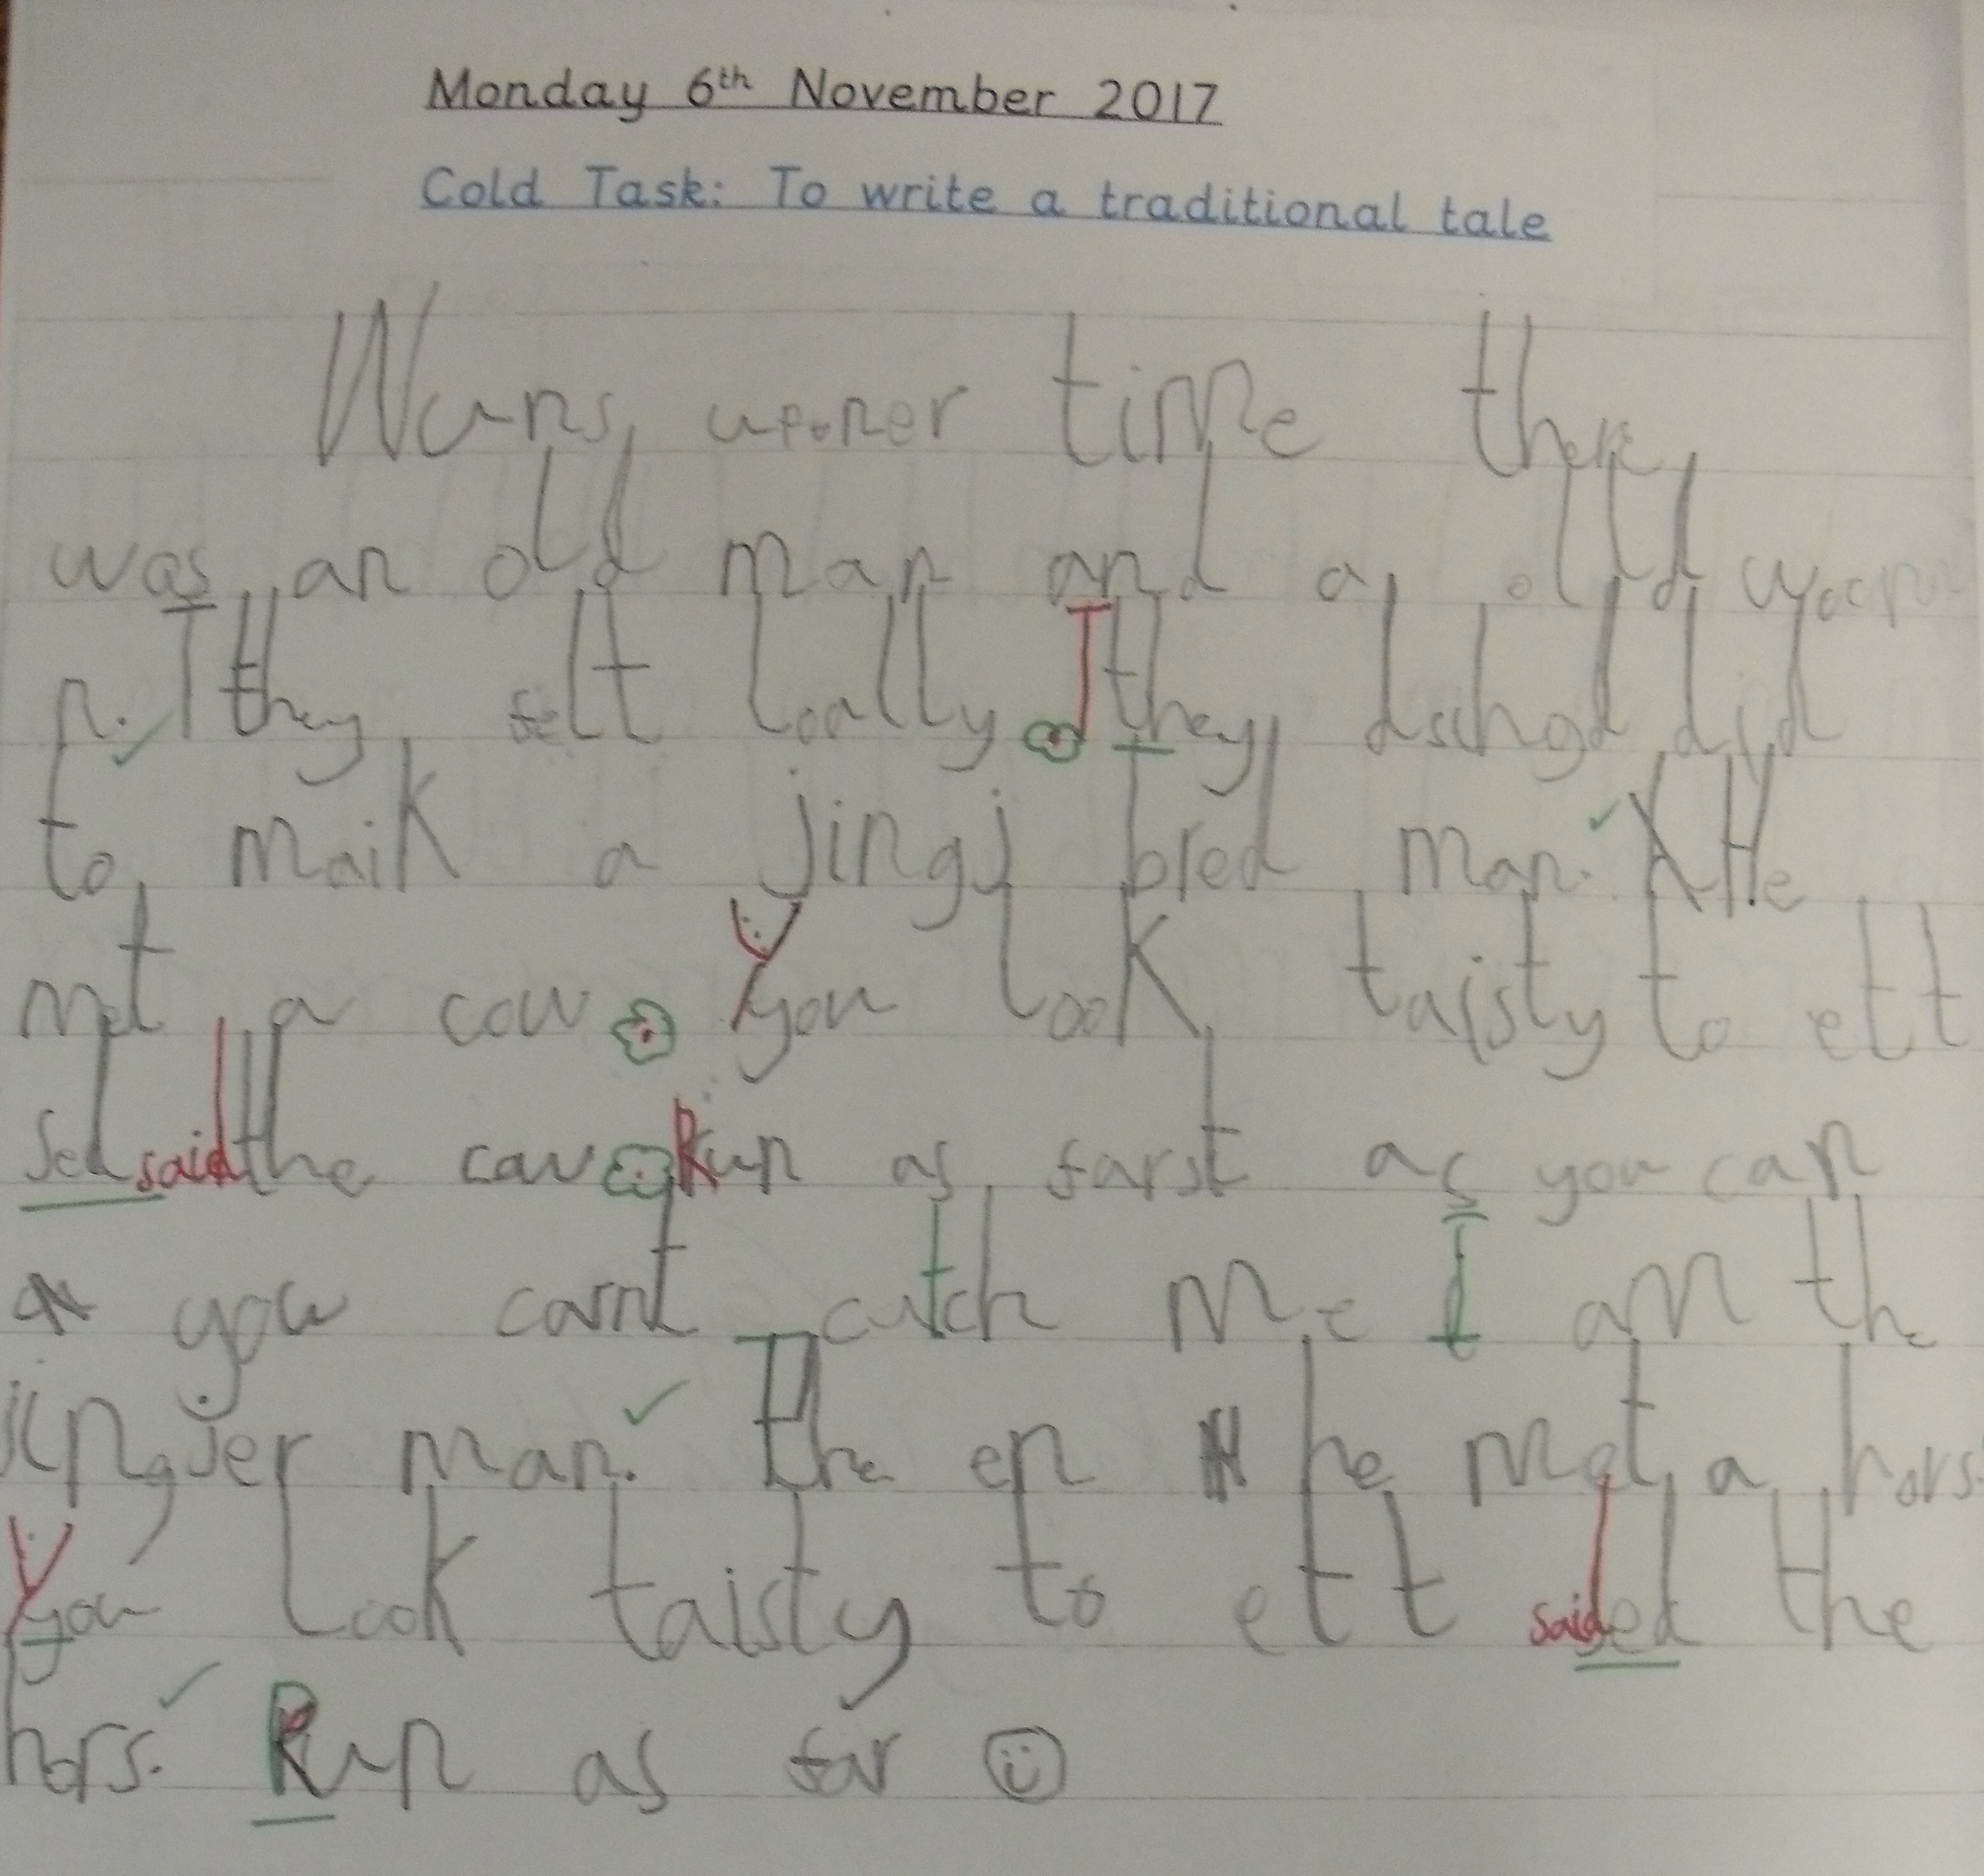 Monday 6th November 2017
Cold Task: To write a traditional tale
Wuns uponer time there
was an old man and a old
n. They felt loally. They did
to maik a jingj bred man. He
met a cow. You look taisty to ett
sed said the cow. Run as farst as you can
you carnt catch me I am the
jingjer man. The en he met a hors.
You look taisty to ett said sed the
hors. Run as far